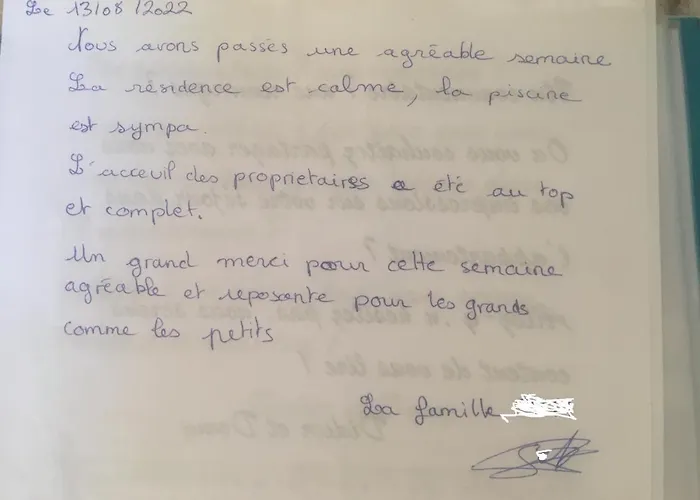 Le 13/08/2022
Nous avons passés une agréable semaine
La résidence est calme, la piscine
est sympa.
L'acceuil des propriétaires a été au top
et complet.
Un grand merci pour cette semaine
agréable et reposante pour les grands
comme les petits
La famille